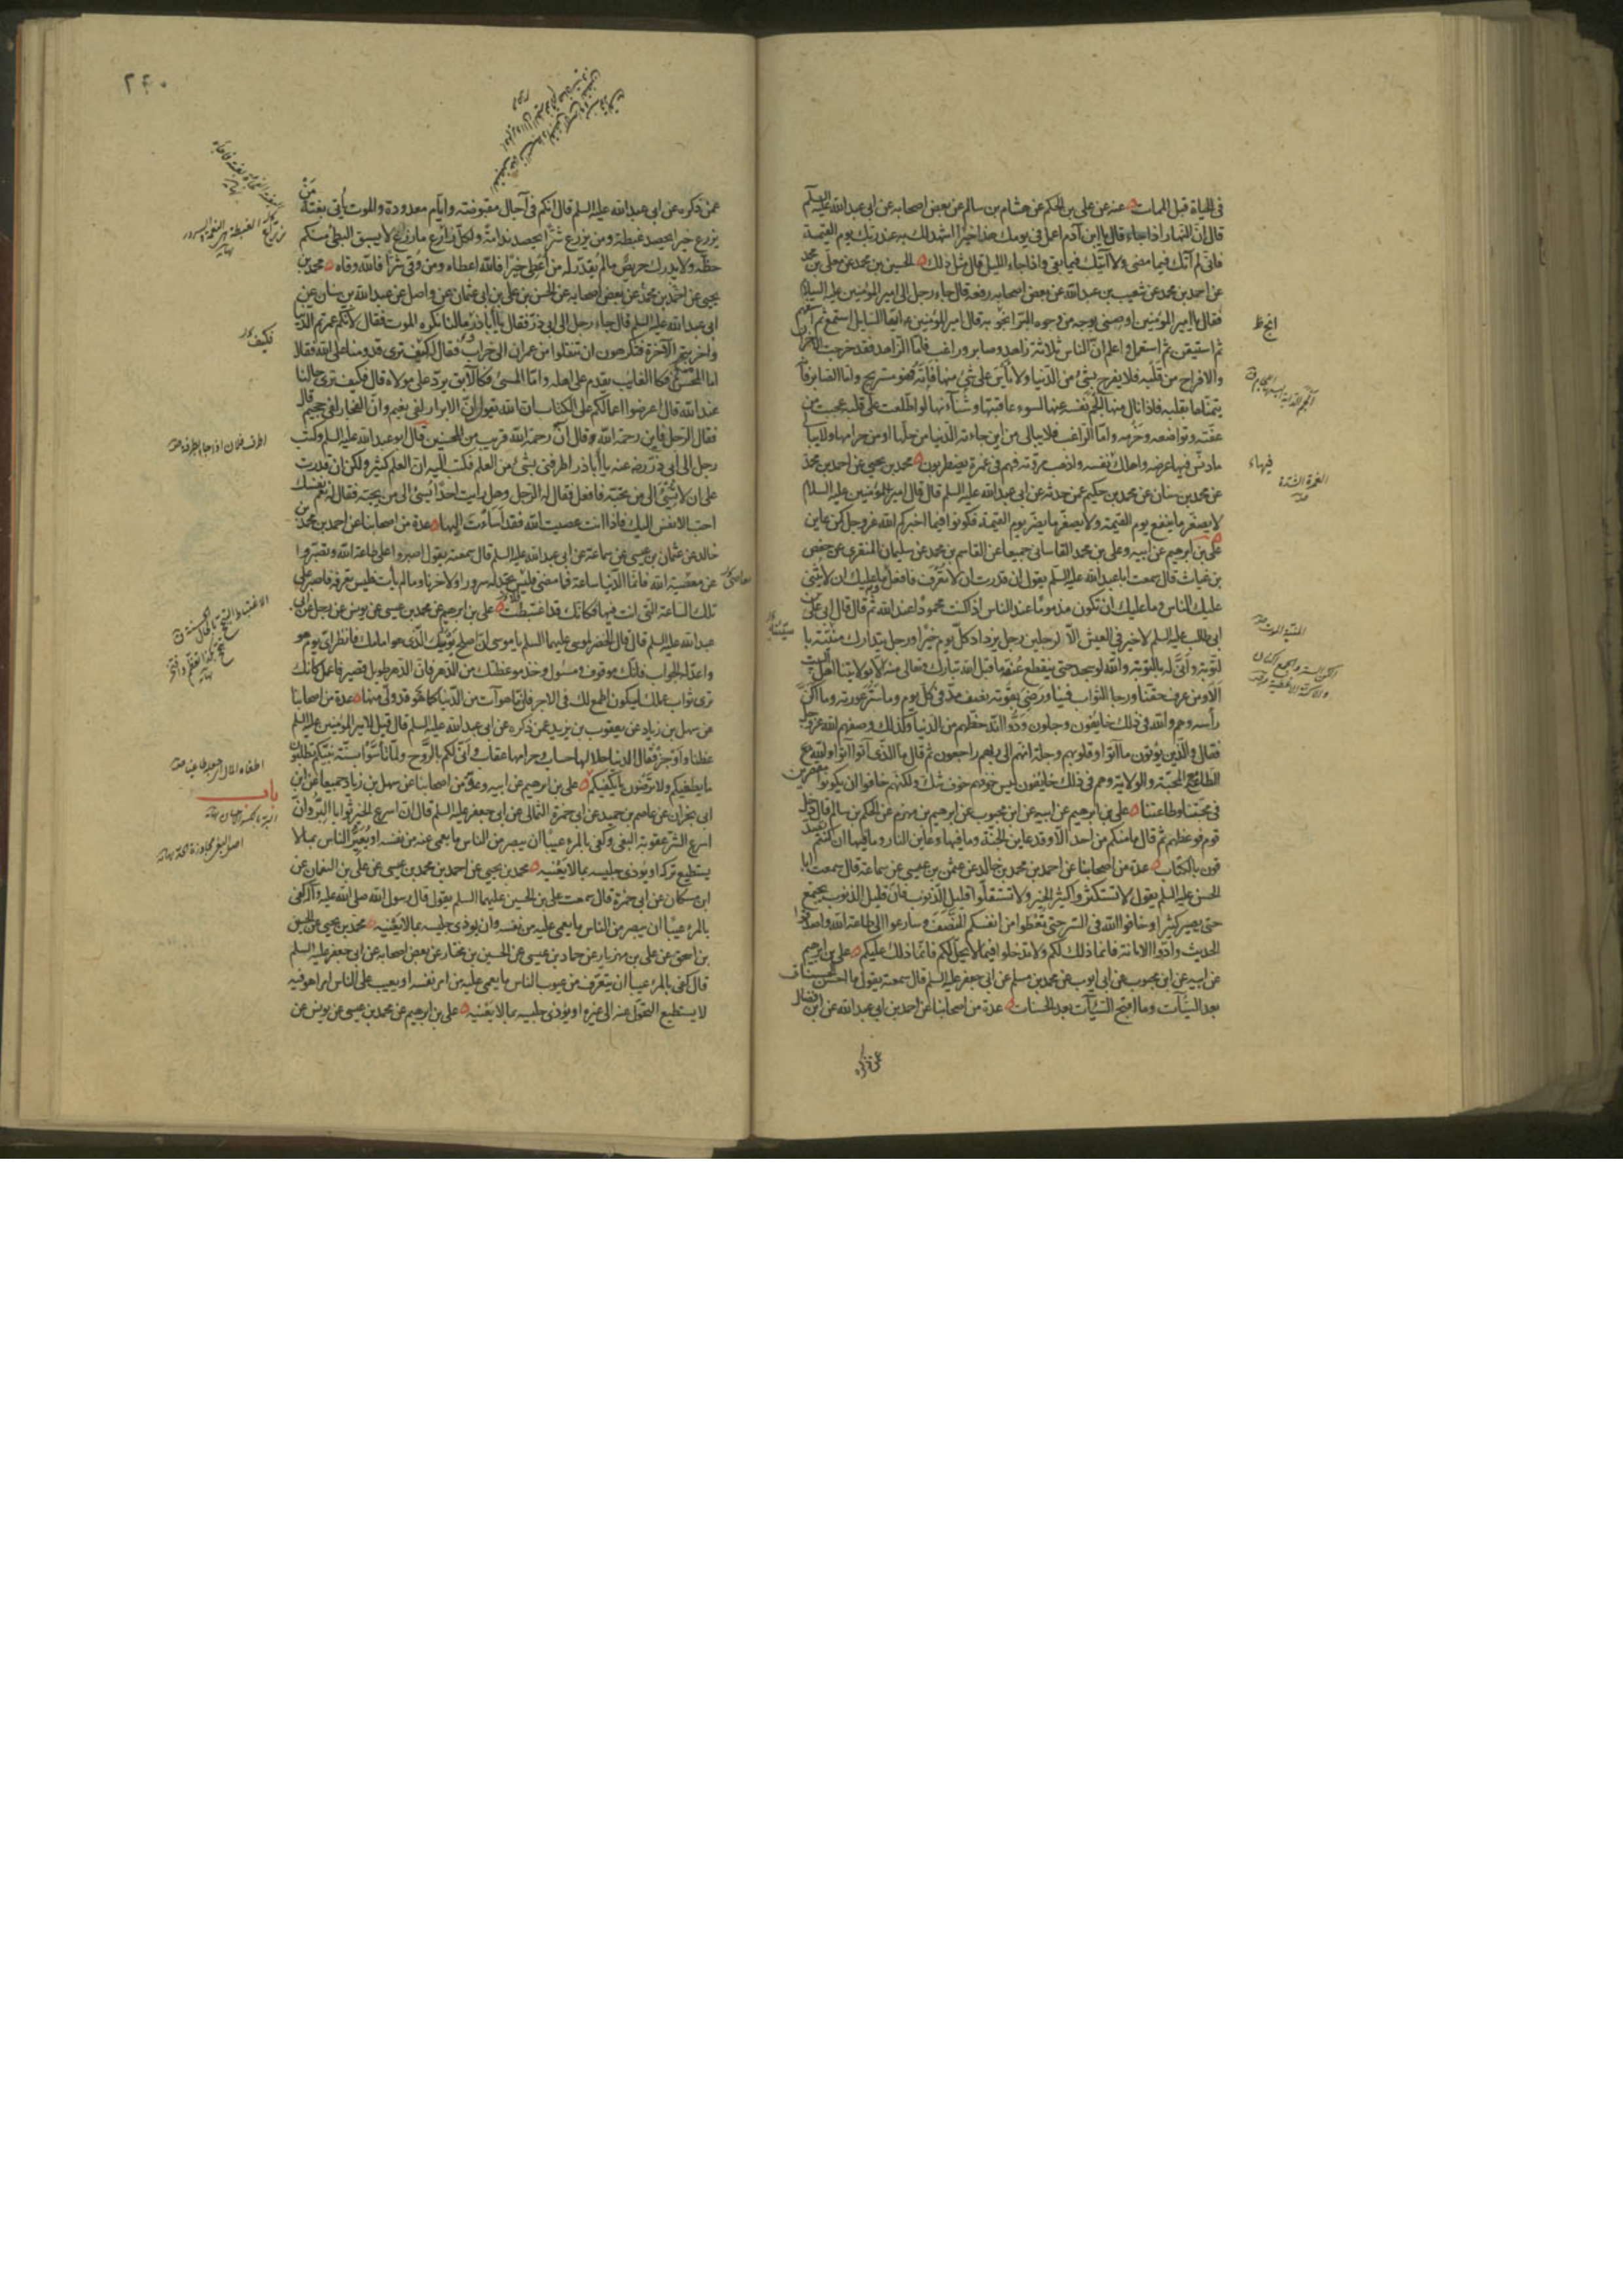 في الحياة قبل الممات عنه عن علي بن الحكم عن هشام بن سالم عن بعض اصحابه عن ابي عبد الله عليه السلم
قال ان النهار اذا جاء قال يا ابن آدم اعمل في يومك هذا خيرا اشهد لك به عند ربك يوم القيمة
فاني لم آتك فيما مضى ولا آتيك فيما بقي واذا جاء الليل قال مثل ذلك الحسين بن محمد عن معلى بن محمد
عن احمد بن محمد عن شعيب بن عبد الله عن بعض اصحابه رفعه قال جاء رجل الى امير المؤمنين عليه السلام
فقال يا امير المؤمنين اوصني بوجه من وجوه البر انجو به قال امير المؤمنين ايها السايل استمع ثم استفهم
ثم استيقن ثم استعمل واعلم ان الناس ثلاثة زاهد وصابر وراغب فاما الزاهد فقد خرجت الاحزان
والافراح من قلبه فلا يفرح بشئ من الدنيا ولا يأس على شئ منها فاته فهو مستريح واما الصابر فا
يتمناها بقلبه فاذا نال منها الجم نفسه عنها لسوء عاقبتها وشنآنها لو اطلعت على قلبه عجبت من
عفته وتواضعه وحزمه واما الراغب فلا يبالي من اين جاءته الدنيا من حلها او من حرامها ولا يبا
ما دنس فيها عرضه واهلك نفسه واذهب مروته فهم في غمرة يضطربون محمد بن يحيى عن احمد بن محمد
عن محمد بن سنان عن محمد بن حكيم عمن حدثه عن ابي عبد الله عليه السلم قال قال امير المؤمنين عليه السلام
لا يصغر ما ينفع يوم القيمة ولا يصغر ما يضر يوم القيمة فكونوا فيما اخبركم الله عز وجل كمن عاين
علي بن ابرهيم عن ابيه وعلي بن محمد القاساني جميعا عن القاسم بن محمد عن سليمان المنقري عن حفص
بن غياث قال سمعت ابا عبد الله عليه السلم يقول ان قدرت ان لا تعرف فافعل وما عليك ان لا يثني
عليك الناس وما عليك ان تكون مذموما عند الناس اذ كنت محمودا عند الله ثم قال قال ابي علي بن
ابي طالب عليه السلم لا خير في العيش الا لرجلين رجل يزداد كل يوم خيرا ورجل يتدارك منيته با
لتوبة وانى له بالتوبة والله لو سجد حتى ينقطع عنقه ما قبل الله تبارك وتعالى منه الا بولايتنا اهل البيت
الا ومن عرف حقنا ورجا الثواب فينا ورضي بقوته نصف مد في كل يوم وما ستر عورته وما اكن
رأسه وهم والله في ذلك خايفون وجلون ودوا انه حظهم من الدنيا وكذلك وصفهم الله عز وجل
فقال والذين يؤتون ما آتوا وقلوبهم وجلة انهم الى ربهم راجعون ثم قال ما الذي آتوا آتوا والله مع
الطاعة المحبة والولاية وهم في ذلك خايفون ليس خوفهم خوف شك ولكنهم خافوا ان يكونوا مقصرين
في محبتنا وطاعتنا علي بن ابرهيم عن ابيه عن ابن محبوب عن ابرهيم بن مهزم عن الحكم بن سالم قال دخل
قوم فوعظهم ثم قال ما منكم من احد الا وقد عاين الجنة وما فيها وعاين النار وما فيها ان كنتم تصد
قون بالكتاب عدة من اصحابنا عن احمد بن محمد بن خالد عن عثمن بن عيسى عن سماعة قال سمعت ابا
الحسن عليه السلم يقول لا تستكثروا كثير الخير ولا تستقلوا قليل الذنوب فان قليل الذنوب يجتمع
حتى يصير كثيرا وخافوا الله في السر حتى تعطوا من انفسكم النصف وسارعوا الى طاعة الله واصدقوا
الحديث وادوا الامانة فانما ذلك لكم ولا تدخلوا فيما لا يحل لكم فانما ذلك عليكم علي بن ابرهيم
عن ابيه عن ابن محبوب عن ابي ايوب عن محمد بن مسلم عن ابي جعفر عليه السلم قال سمعته يقول ما احسن الحسنات
بعد السيآت وما اقبح السيآت بعد الحسنات عدة من اصحابنا عن احمد بن ابي عبد الله عن ابن فضال
عمن ذكره
٢٤٠
عمن ذكره عن ابي عبد الله عليه السلم قال انكم في آجال مقبوضة وايام معدودة والموت يأتي بغتة من
يزرع خيرا يحصد غبطة ومن يزرع شرا يحصد ندامة ولكل زارع ما زرع لا يسبق البطئ منكم
حظه ولا يدرك حريص ما لم يقدر له من اعطي خيرا فالله اعطاه ومن وقي شرا فالله وقاه محمد بن
يحيى عن احمد بن محمد عن بعض اصحابه عن الحسن بن علي بن ابي عثمان عن واصل عن عبد الله بن سنان عن
ابي عبد الله عليه السلم قال جاء رجل الى ابي ذر فقال يا اباذر ما لنا نكره الموت فقال لانكم عمرتم الدنيا
واخربتم الآخرة فتكرهون ان تنقلوا من عمران الى خراب فقال له كيف ترى قدومنا على الله فقال
اما المحسن منكم فكالغايب يقدم على اهله واما المسئ فكالآبق يرد على مولاه قال فكيف ترى حالنا
عند الله قال اعرضوا اعمالكم على الكتاب ان الله يقول ان الابرار لفي نعيم وان الفجار لفي جحيم قال
فقال الرجل فاين رحمة الله وقال ان رحمة الله قريب من المحسنين قال ابو عبد الله عليه السلم وكتب
رجل الى ابي ذر رضه عنه يا اباذر اطرفني بشئ من العلم فكتب اليه ان العلم كثير ولكن ان قدرت
على ان لا تسئ الى من تحبه فافعل فقال له الرجل وهل رايت احدا يسئ الى من يحبه فقال له نعم نفسك
احب الانفس اليك فاذا انت عصيت الله فقد اسأت اليها عدة من اصحابنا عن احمد بن محمد بن
خالد عن عثمان بن عيسى عن سماعة عن ابي عبد الله عليه السلم قال سمعته يقول اصبروا على طاعة الله وتصبروا
عن معصية الله فانما الدنيا ساعة فما مضى فليس تجد له سرورا ولا حزنا وما لم يأت فليس تعرفه فاصبر على
تلك الساعة التي انت فيها فكانك قد اغتبطت علي بن ابرهيم عن محمد بن عيسى عن يونس عن رجل عن ابي
عبد الله عليه السلم قال قال الخضر لموسى عليهما السلم يا موسى ان اصلح يوميك الذي هو امامك فانظر اي يوم هو
واعد له الجواب فانك موقوف ومسئول وخذ موعظتك من الدهر فان الدهر طويل قصير فاعمل كانك
ترى ثواب عملك ليكون اطمع لك في الاجر فان ما هو آت من الدنيا كما هو قد ولى منها عدة من اصحابنا
عن سهل بن زياد عن يعقوب بن يزيد عمن ذكره عن ابي عبد الله عليه السلم قال قيل لامير المؤمنين عليه السلم
عظنا واوجز فقال الدنيا حلالها حساب وحرامها عقاب وانى لكم بالروح ولما تأسوا بسنة نبيكم تطلبون
ما يطغيكم ولا ترضون ما يكفيكم علي بن ابرهيم عن ابيه وعدة من اصحابنا عن سهل بن زياد جميعا عن ابن
ابي نجران عن عاصم بن حميد عن ابي حمزة الثمالي عن ابي جعفر عليه السلم قال ان اسرع الخير ثوابا البر وان
اسرع الشر عقوبة البغي وكفى بالمرء عيبا ان يبصر من الناس ما يعمى عنه من نفسه او يعير الناس بما لا
يستطيع تركه او يؤذي جليسه بما لا يعنيه محمد بن يحيى عن احمد بن محمد بن عيسى عن علي بن النعمان عن
ابن مسكان عن ابي حمزة قال سمعت علي بن الحسين عليهما السلم يقول قال رسول الله صلى الله عليه وآله كفى
بالمرء عيبا ان يبصر من الناس ما يعمى عليه من نفسه وان يؤذي جليسه بما لا يعنيه محمد بن يحيى عن الحسين
بن اسحق عن علي بن مهزيار عن حماد بن عيسى عن الحسين بن مختار عن بعض اصحابه عن ابي جعفر عليه السلم
قال كفى بالمرء عيبا ان يتعرف من عيوب الناس ما يعمى عليه من امر نفسه او يعيب على الناس امرا هو فيه
لا يستطيع التحول عنه الى غيره او يؤذي جليسه بما لا يعنيه علي بن ابرهيم عن محمد بن عيسى عن يونس عن